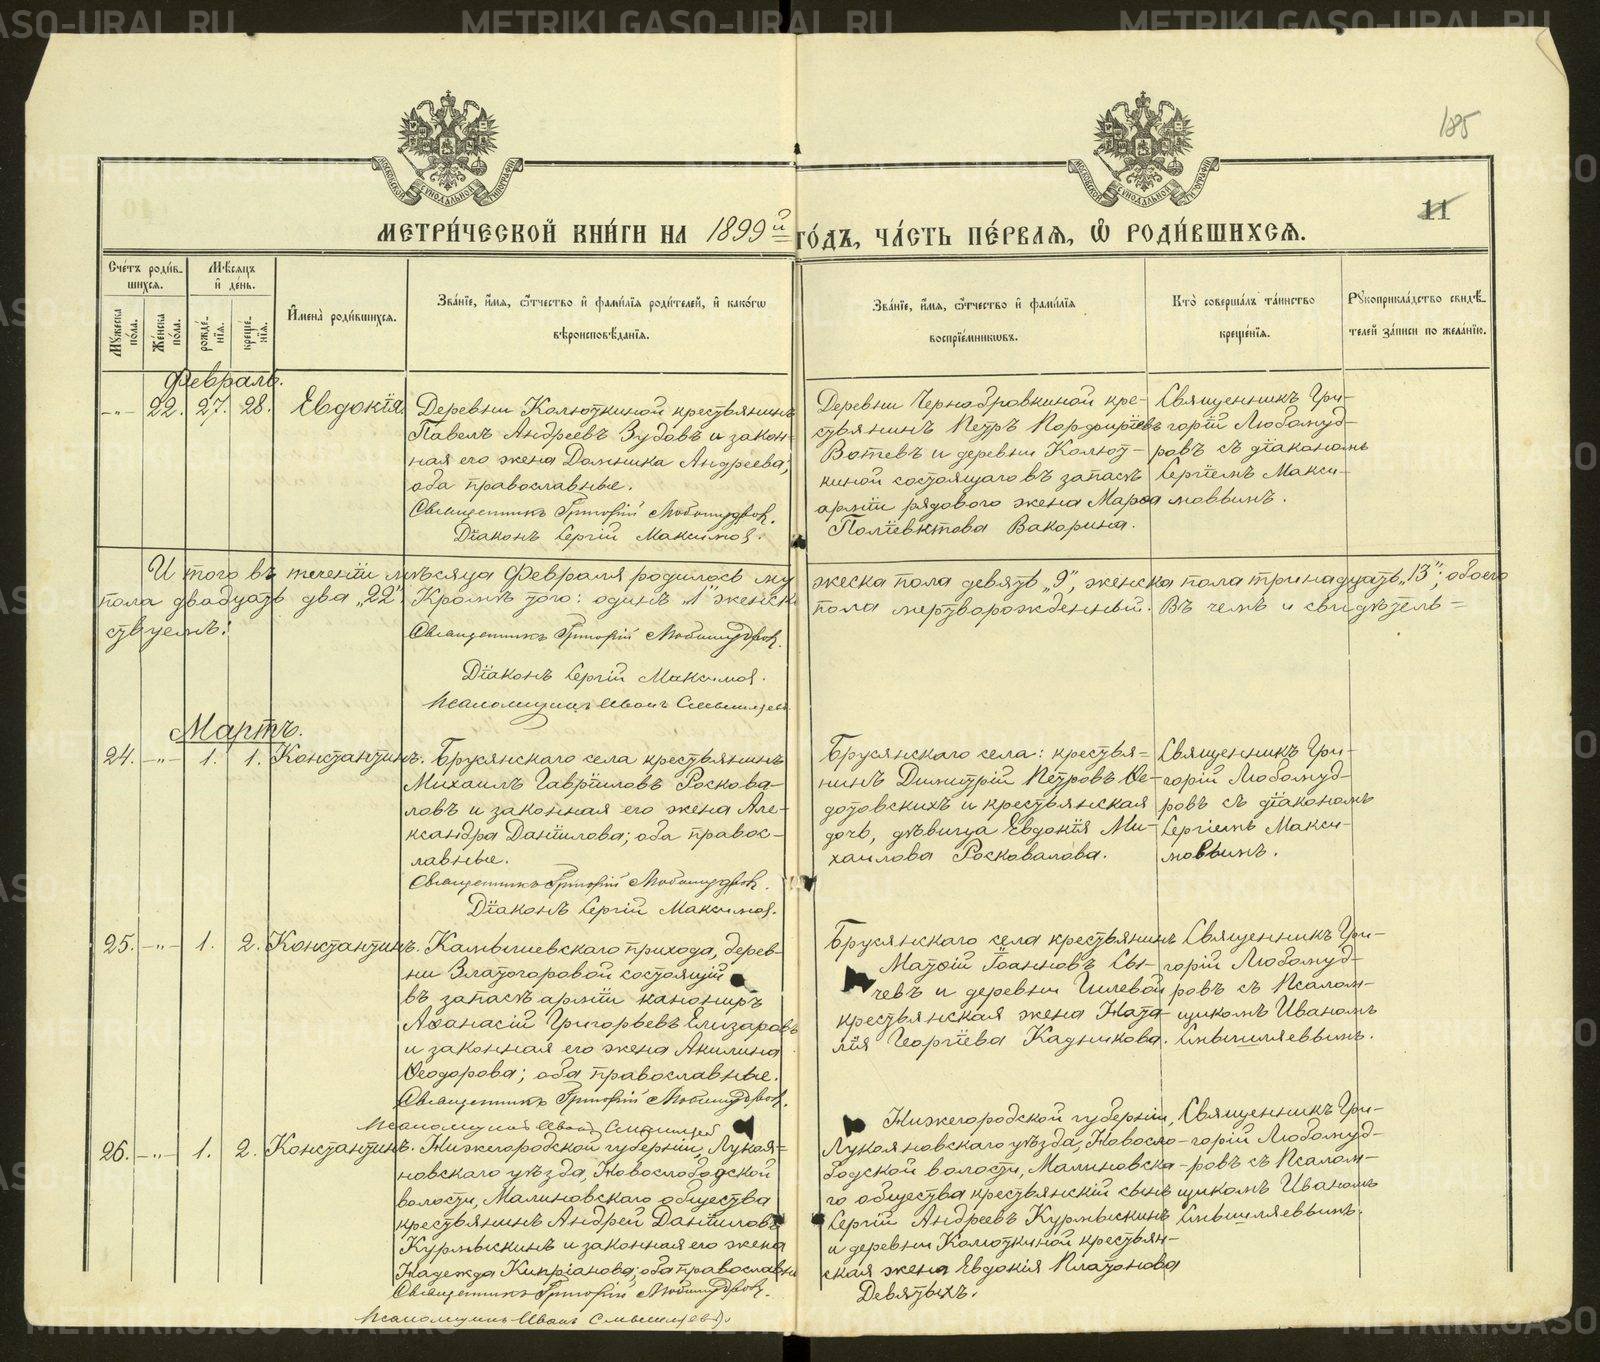 METRIKI.GASO-URAL.RU
185
11
МОСКОВСКОЙ СѴНОДАЛЬНОЙ ТИПОГРАФІИ
МОСКОВСКОЙ СѴНОДАЛЬНОЙ ТИПОГРАФІИ
МЕТРИ́ЧЕСКОЙ КНИ́ГИ НА 1899й ГО́ДЪ, ЧА́СТЬ ПЕ́РВАЯ, Ѡ РОДИ́ВШИХСЯ.
Сче́тъ роди́в-
шихся.
Мѣсяцъ
и де́нь.
Мꙋжеска
по́ла.
Же́нска
по́ла.
рожде́-
нія.
креще́-
нія.
Имена̀ роди́вшихся.
Зва́ніе, и́мя, ѻ́тчество и фами́лія роди́телей, и како́гѡ
вѣроисповѣ́данія.
Зва́ніе, и́мя, ѻ́тчество и фами́лія
воспріе́мникѡвъ.
Кто̀ соверша́лъ та́инство
креще́нія.
Рꙋкоприкла́дство свидѣ́-
телей за́писи по жела́нію.
Февраль.
-"- 22. 27. 28. Евдокія.
Деревни Колюткиной крестьянинъ
Павелъ Андреевъ Зудовъ и закон-
ная его жена Домника Андреева;
оба православные.
Священникъ Григорій Любомудровъ.
Діаконъ Сергій Максимов.
Деревни Чернобровкиной кре-
стьянинъ Петръ Порфиріевъ
Вотевъ и деревни Колют-
киной состоящаго въ запасѣ
арміи рядового жена Марѳа
Поліевктова Вакорина.
Священникъ Гри-
горій Любомуд-
ровъ съ діакономъ
Сергіемъ Макси-
мовымъ.
И того въ теченіи мѣсяца Февраля родилось му
жеска пола девять „9", женска пола тринадцать „13"; обоего
пола двадцать два „22". Кромѣ того: одинъ „1" женск
пола мертворожденный. Въ чемъ и свидѣтель=
ствуемъ:
Священникъ Григорій Любомудровъ.
Діаконъ Сергій Максимов.
Псаломщикъ Иванъ Смышляевъ
Мартъ.
24. -"- 1. 1. Константинъ.
Брусянскаго села крестьянинъ
Михаилъ Гавріиловъ Роскова-
ловъ и законная его жена Але-
ксандра Даніилова; оба правос-
лавные.
Священникъ Григорій Любомудровъ.
Діаконъ Сергій Максимов.
Брусянскаго села: крестья-
нинъ Димитрій Петровъ Ѳе-
дотовскихъ и крестьянская
дочь, дѣвица Евдокія Ми-
хаилова Росковалова.
Священникъ Гри-
горій Любомуд-
ровъ съ діакономъ
Сергіемъ Макси-
мовымъ.
25. -"- 1. 2. Константинъ.
Камышевскаго прихода, дерев-
ни Златогоровой состоящій
въ запасѣ арміи канониръ
Аѳанасій Григорьевъ Елизаровъ
и законная его жена Акилина
Ѳеодорова; оба православные.
Священникъ Григорій Любомудровъ.
Псаломщикъ Иванъ Смышляев
Брусянскаго села крестьянинъ
Матѳій Іоанновъ Сы-
чевъ и деревни Гилевой
крестьянская жена Ната-
лія Георгіева Кадникова.
Священникъ Гри-
горій Любомуд-
ровъ съ Псалом-
щикомъ Иваномъ
Смышляевымъ.
26. -"- 1. 2. Константинъ.
Нижегородской губерніи, Лукоя=
новскаго уѣзда, Новослободской
волости, Малиновскаго общества
крестьянинъ Андрей Даніиловъ
Курмыскинъ и законная его жена
Надежда Кипріанова; оба православны
Священникъ Григорій Любомудровъ.
Псаломщикъ Иванъ Смышляевъ.
Нижегородской губерніи,
Лукояновскаго уѣзда, Новосло-
бодской волости, Малиновска-
го общества крестьянскій сынъ
Сергій Андреевъ Курмыскинъ
и деревни Колюткиной крестьян-
ская жена Евдокія Платонова
Девятыхъ.
Священникъ Гри-
горій Любомуд-
ровъ съ Псалом-
щикомъ Иваномъ
Смышляевымъ.